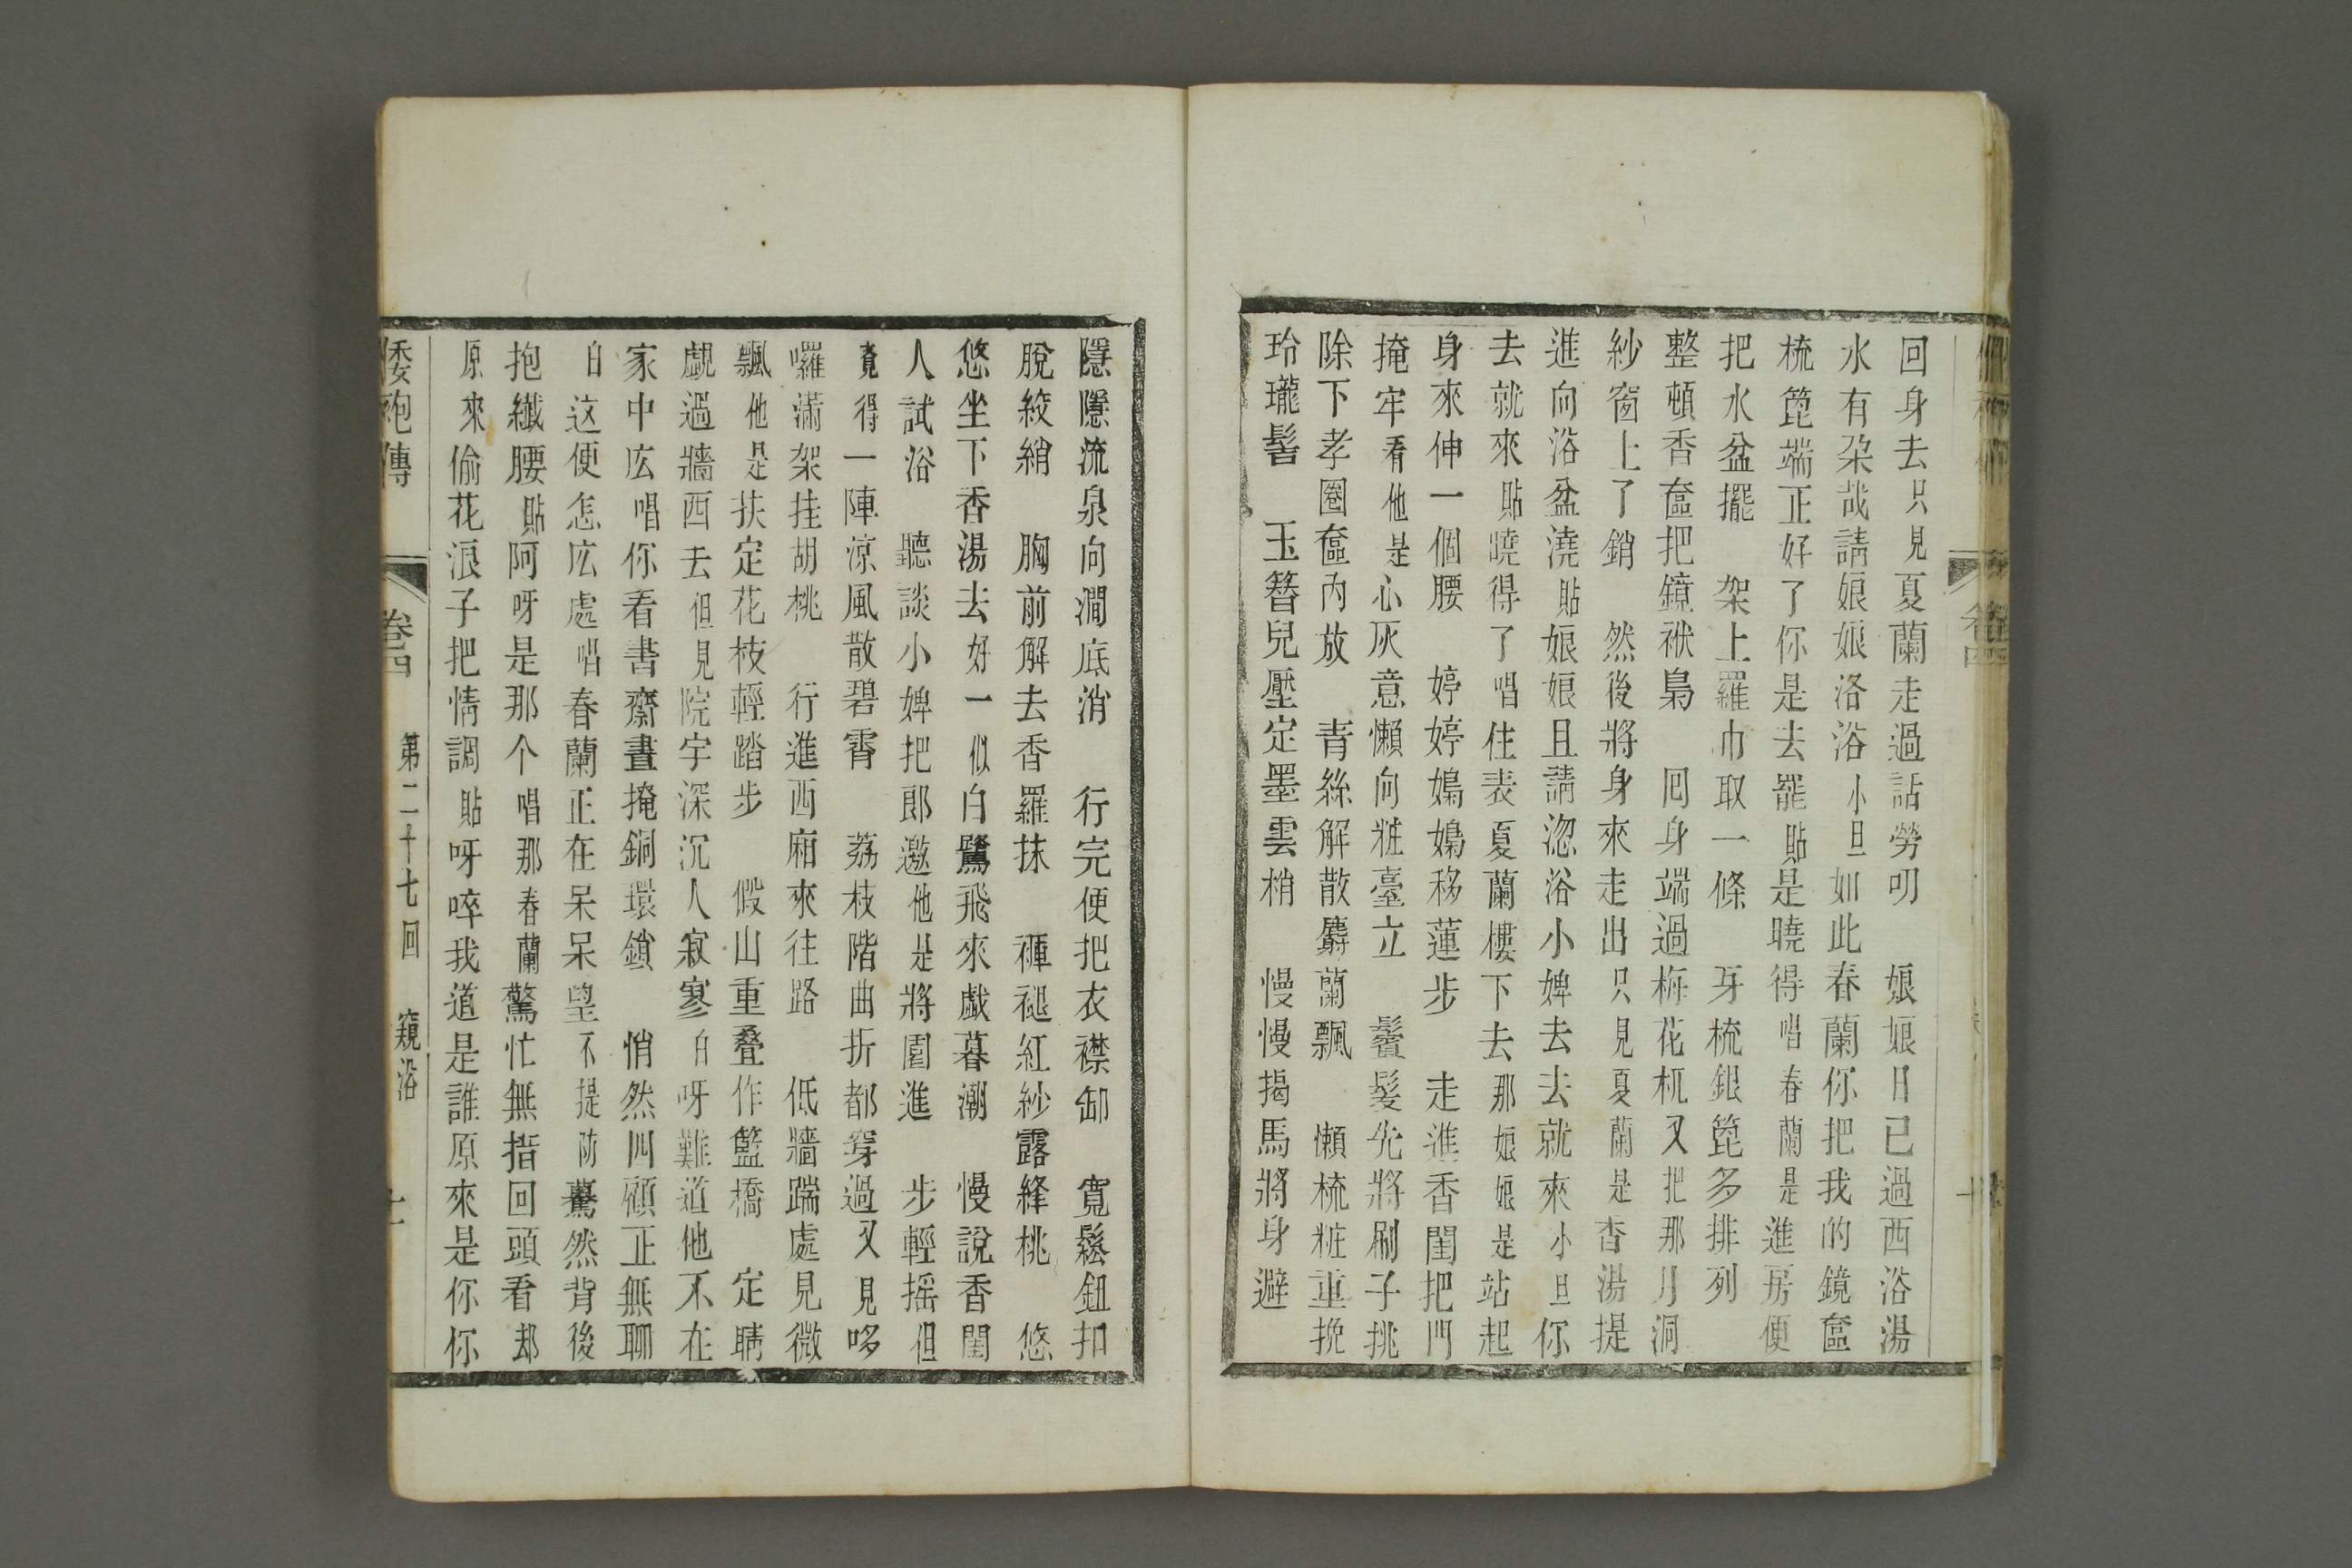 回身去只見夏蘭走過話勞叨　娘娘日已過西浴湯
水有朶哉請娘娘洛浴小旦如此春蘭你把我的鏡奩
梳篦端正好了你是去罷貼是曉得唱春蘭是進房便
把水盆擺　架上羅巾取一條　牙梳銀篦多排列
整頓香奩把鏡袱梟　囘身端過梅花杌又把那月洞
紗窗上了銷　然後將身來走出只見夏蘭是杳湯提
進向浴盆澆貼娘娘且請浴小婢去去就來小旦你
去就來貼曉得了唱住表夏蘭樓下去那娘娘是站起
身來伸一個腰　婷婷嬝嬝移蓮步　走進香閨把門
掩牢看他是心灰意懶向粧臺立　鬢髮先將刷子挑
除下孝圈奩內放　青絲解散麝蘭飄　懶梳粧重挽
玲瓏髻　玉簪兒壓定墨雲梢　慢慢揭馬將身避
隱隱流泉向澗底消　行完便把衣襟卸　寬鬆鈕扣
脫絞綃　胸前解去香羅抹　褌褪紅紗露絳桃　悠
悠坐下香湯去好一似白鷺飛來戲暮潮　慢說香閨
人試浴　聽談小婢把郎邀他是將園進　步輕搖但
覓得一陣涼風散碧霄　荔枝階曲折都穿過又見哆
囉滿架挂胡桃　行進西廂來往路　低牆踹處見微
飄他是扶定花枝輕踏步　假山重疊作籃橋　定睛
覷過牆西去但見院宇深沉人寂寥白呀難道他不在
家中庅唱你看書齋晝掩銅環鎖　悄然四顧正無聊
白这便怎庅處唱春蘭正在呆呆望不提防驀然背後
抱纖腰貼阿呀是那个唱那春蘭驚忙無措回頭看却
原來偷花浪子把情調貼呀啐我道是誰原來是你你
倭袍傳　卷四　第二十七回　窺浴　十一